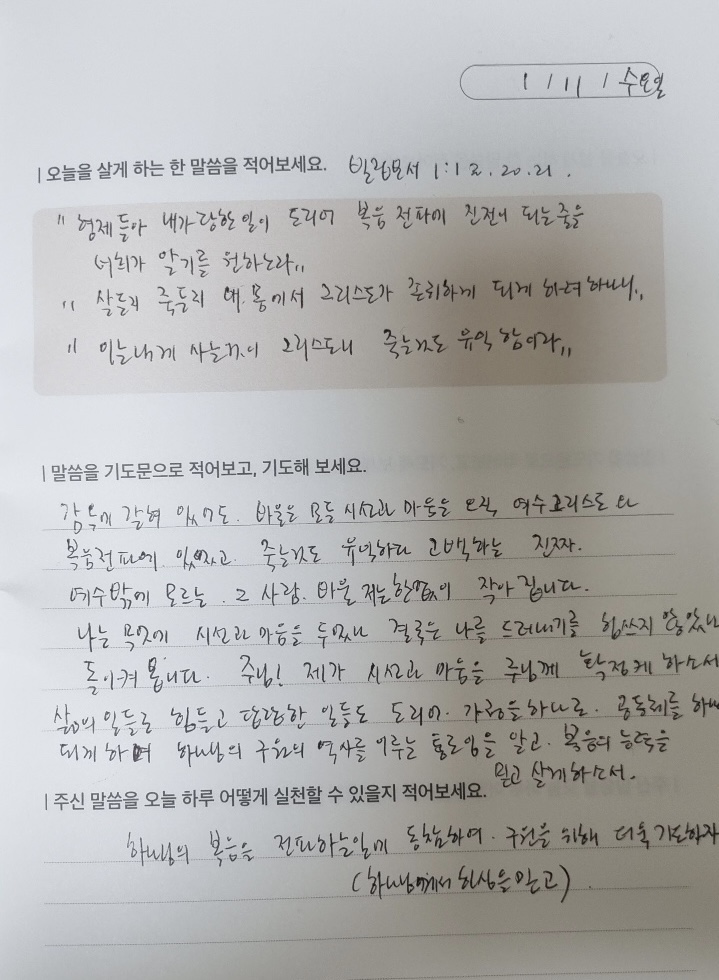 1 / 11 / 수요일
| 오늘을 살게 하는 한 말씀을 적어보세요. 빌립보서 1:12. 20. 21.
" 형제들아 내가 당한 일이 도리어 복음 전파에 진전이 되는줄을
너희가 알기를 원하노라"
" 살든지 죽든지 내 몸에서 그리스도가 존귀하게 되게 하려 하나니"
" 이는 내게 사는것이 그리스도니 죽는것도 유익함이라"
| 말씀을 기도문으로 적어보고, 기도해 보세요.
감옥에 갇혀 있어도. 바울은 모든 시선과 마음을 오직 예수그리스도와
복음전파에 있었고. 죽는것도 유익하다 고백하는 진짜.
예수밖에 모르는. 그 사람. 바울 저는 한없이 작아집니다.
나는 무엇에 시선과 마음을 두었나 결국은 나를 드러내기를 힘쓰지 않았나
돌이켜 봅니다. 주님! 제가 시선과 마음을 주님께 확정케 하소서
삶의 일들로 힘들고 답답한 일들도 도리어. 가정을 하나로. 공동체를 하나
되게 하며 하나님의 구원의 역사를 이루는 통로임을 알고. 복음의 능력을
믿고 살게하소서.
| 주신 말씀을 오늘 하루 어떻게 실천할 수 있을지 적어보세요.
하나님의 복음을 전파하는일에 동참하여. 구원을 위해 더욱 기도하자
(하나님께서 하심을 믿고).